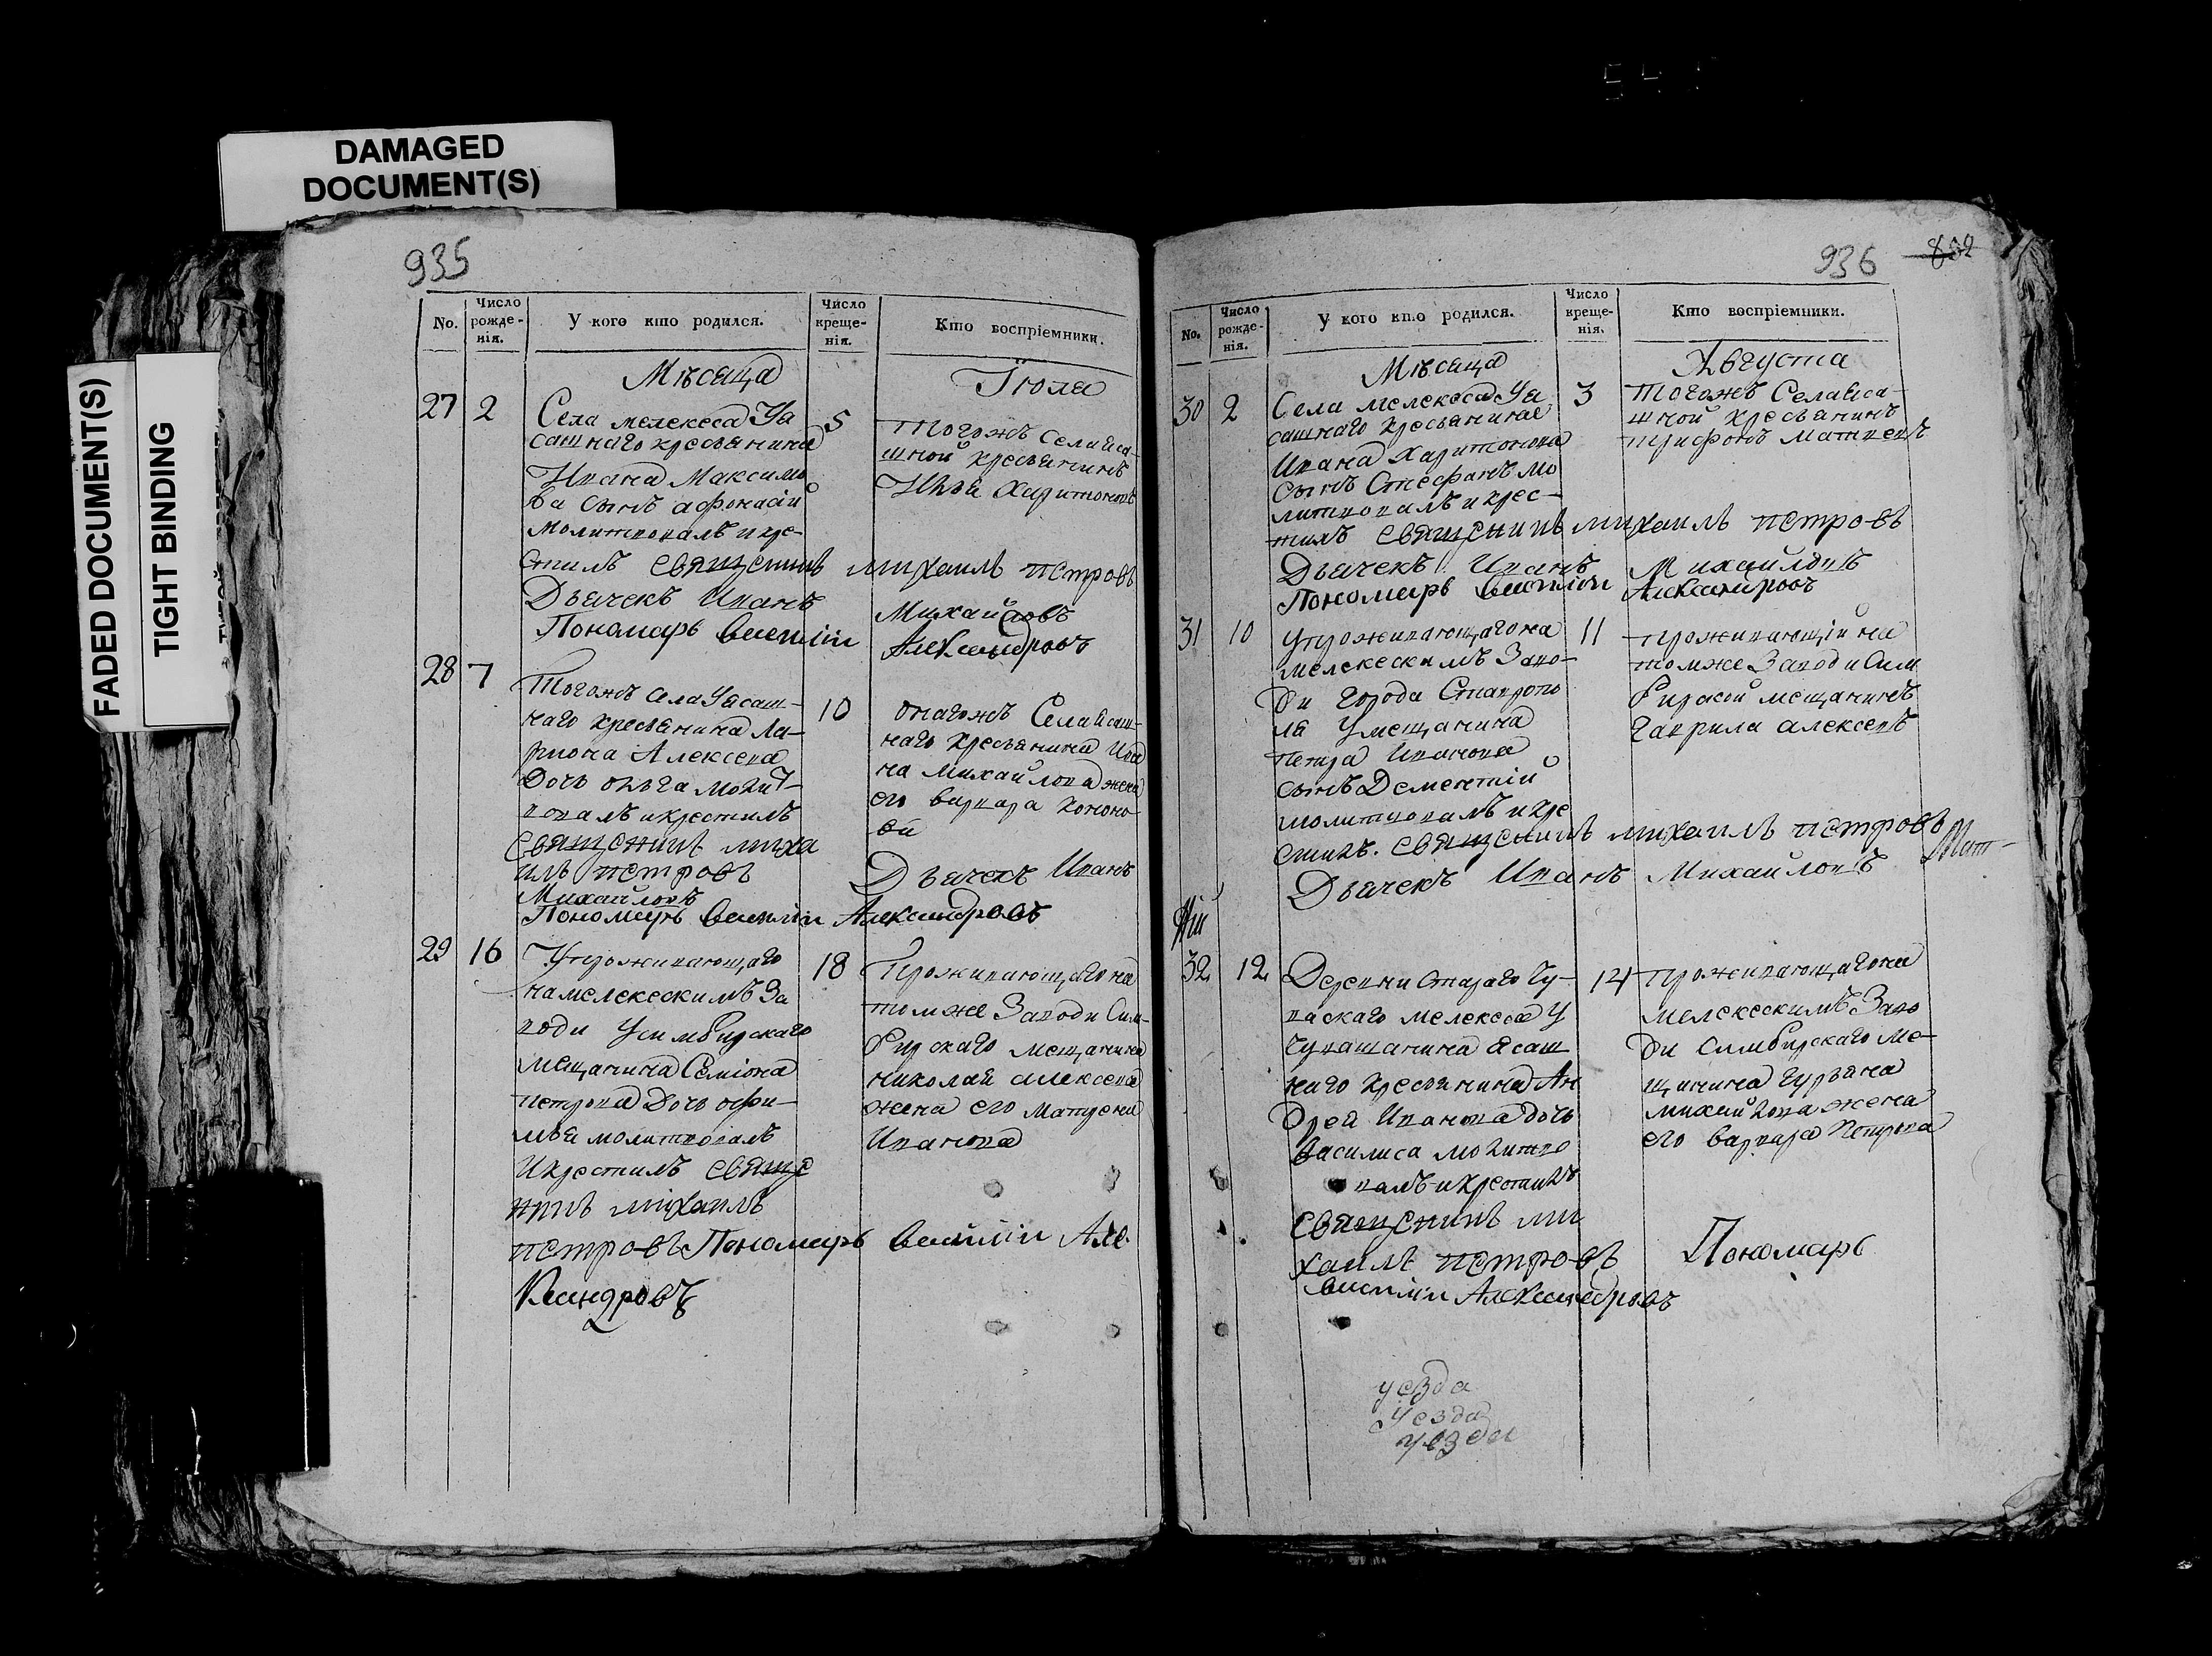 DAMAGED
DOCUMENT(S)
FADED DOCUMENT(S)
TIGHT BINDING
935
No.
Число рожденія.
У кого кто родился.
Число крещенія.
Кто воспріемники.
Мѣсяца
Іюля
27 2
Села мелекеса Уя
сашнаго хресьянина
Ивана Максимо
ва сынъ афонасій
молитвовалъ икре
стилъ священникъ михаилъ петровъ
Дьячекъ Иванъ Михайловъ
Пономарь василіи Александровъ
5
Тогожъ села яса-
шной хресьянинъ
Илья Харитоновъ
28 7
Тогожъ села Уясаш-
наго хресьянина Ла-
риона Алексева
Дочь ольга молит-
вовалъ икрестилъ
священникъ миха
илъ петровъ
Михайловъ
Пономарь василіи Александровъ
10
онагожъ Села ясаш-
наго хресьянина Ива
на михайлова жена
его варвара хононо-
ва
Дьячекъ Иванъ
29 16
Упроживающаго
на мелекескимъ За
води Усимбирскаго
мещанина Семіона
петрова Дочь офи-
мья молитвовалъ
Икрестилъ свяще
нникъ михаилъ
петровъ Пономарь василіи Але-
Ксандровъ
18
Проживающаго на
томже Заводи Сим-
бирскаго мещанина
николая алексева
жена его матрена
Иванова
936
802
No.
Число рожденія.
У кого кто родился.
Число крещенія.
Кто воспріемники.
Мѣсяца
Августа
30 2
Села мелекеса Уя
сашнаго хресьянина
Ивана Харитонова
сынъ Стефанъ мо
литвовалъ икрес-
тилъ священникъ михаилъ петровъ
Дьячекъ Иванъ Михайловъ
Пономарь василіи Александровъ
3
Тогожъ Села яса-
шной хресьянинъ
трифонъ матвевъ
31 10
Упроживающаго на
мелекескимъ Заво-
ди города Ставропо
ля Умещанина
петра Иванова
сынъ Дементій
молитвовалъ икре
стилъ. священникъ михаилъ петровъ
Дьячекъ Иванъ Михайловъ
11
проживающій на
томже Заводи Сим
бирской мещанинъ
гаврила алексевъ
32 12
Деревни Стараго Чу-
васкаго мелекеса У
Чувашанина ясаш
наго хресьянина Ан
дрея Иванова дочь
василиса молитво
валъ икрестилъ
священникъ ми
хаилъ петровъ Пономарь
василіи Александровъ
14
проживающаго на
мелекескимъ Заво
ди Симбирскаго ме-
щанина гурьяна
михайлова жена
его варвара Петрова
уезда
уезда
уезда